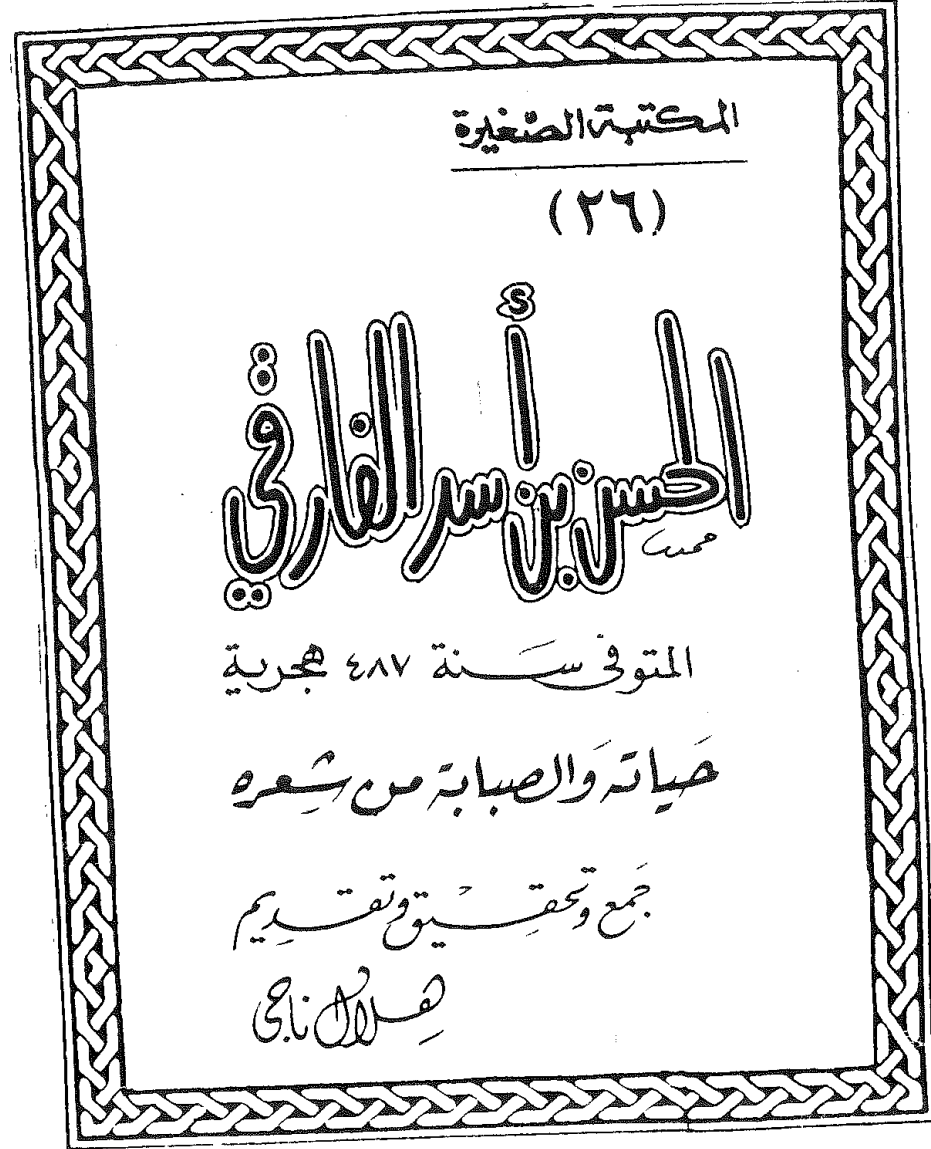 المكتبة الصغيرة
(٢٦)
الحسن بن أسد الفارقي
المتوفى سنة ٤٨٧ هجرية
حَياته وَالصبابة من شِعره
جَمع وتحقيق وتقديم
هلال ناجي